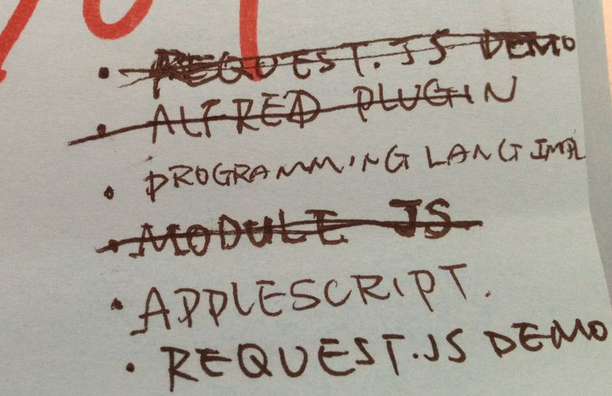 • REQUEST.JS DEMO
• ALFRED PLUGIN
• PROGRAMMING LANG IMPL
• MODULE JS
• APPLESCRIPT.
• REQUEST.JS DEMO